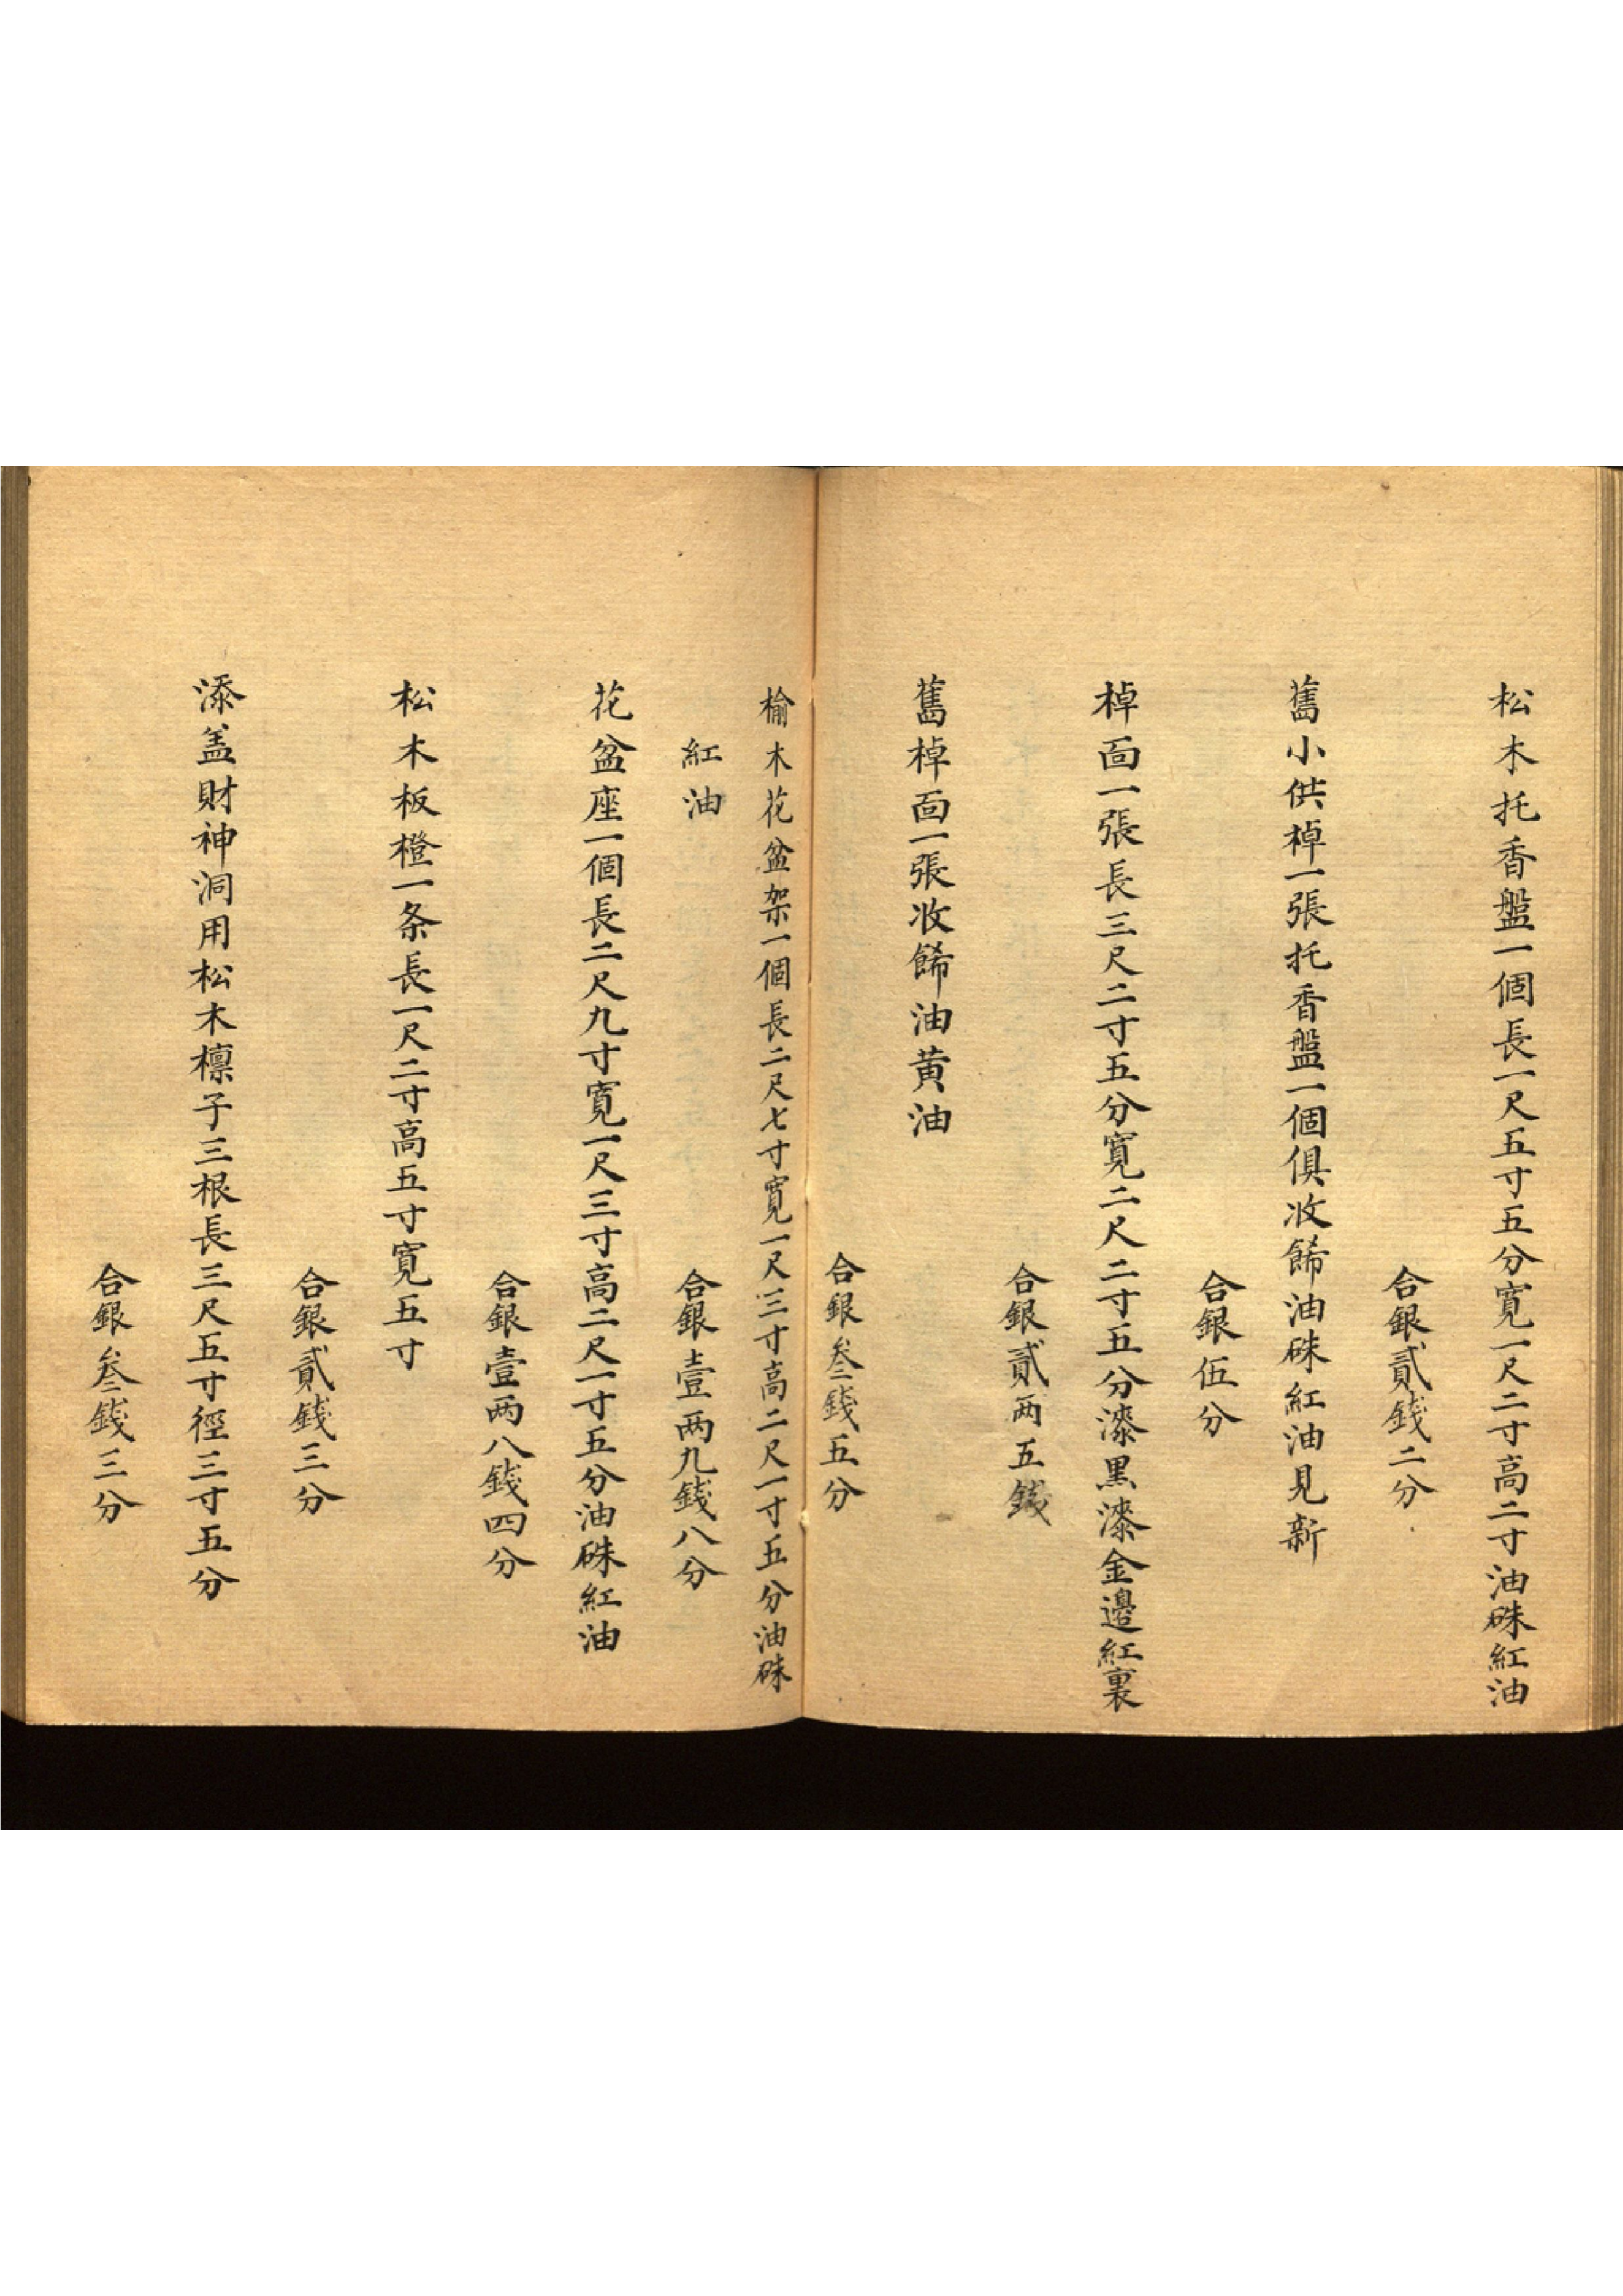 松木托香盤一個長一尺五寸五分寬一尺二寸高二寸油硃紅油
合銀貳錢二分
舊小供棹一張托香盤一個俱收餙油硃紅油見新
合銀伍分
棹面一張長三尺二寸五分寬二尺二寸五分漆黑漆金邊紅裏
合銀貳两五錢
舊棹面一張收餙油黄油
合銀叁錢五分
榆木花盆架一個長二尺七寸寬一尺三寸高二尺一寸五分油硃
紅油
合銀壹两九錢八分
花盆座一個長二尺九寸寬一尺三寸高二尺一寸五分油硃紅油
合銀壹两八錢四分
松木板橙一条長一尺二寸高五寸寬五寸
合銀貳錢三分
添盖財神洞用松木檩子三根長三尺五寸徑三寸五分
合銀叁錢三分